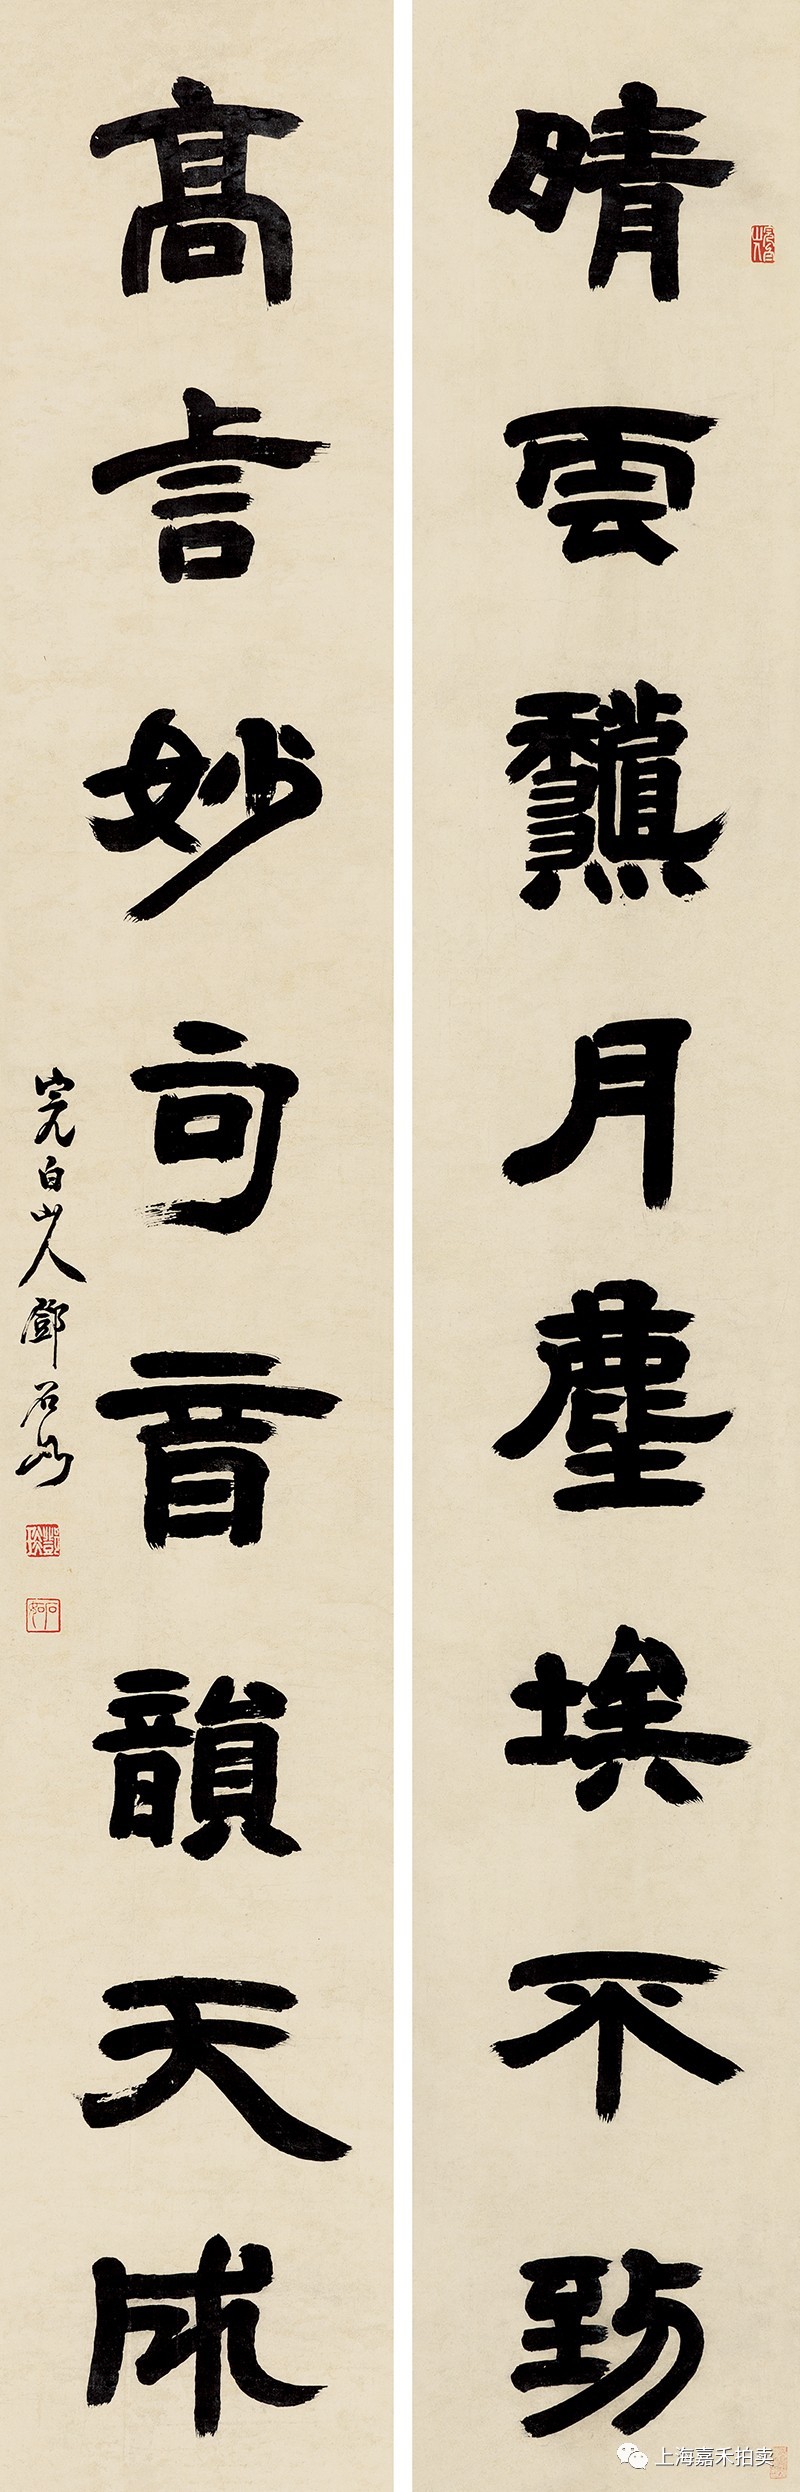 晴雲龝月塵埃不到
高言妙句音韻天成
完白山人鄧石如
鄧琰
石如
上海嘉禾拍卖